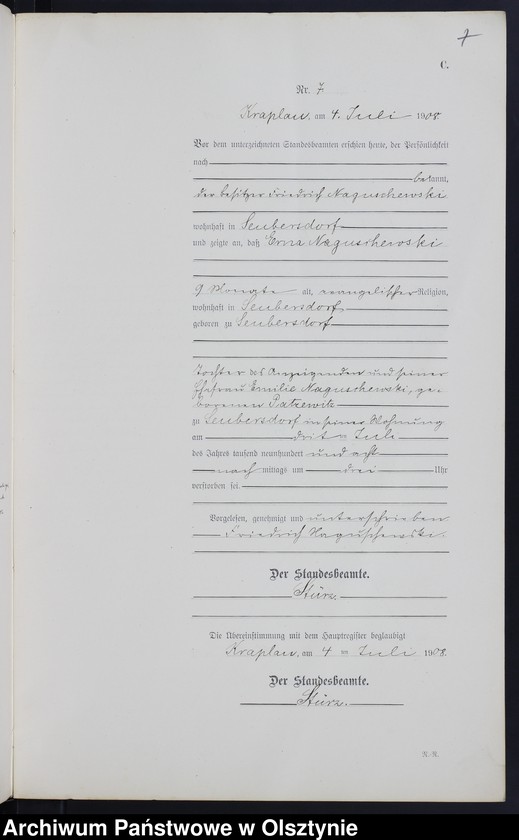 7
C.
Nr. 7.
Kraplau, am 4. Juli 1908.
Vor dem unterzeichneten Standesbeamten erschien heute, der Persönlichkeit
nach
bekannt,
der Besitzer Friedrich Naguschewski
wohnhaft in Seubersdorf
und zeigte an, daß Erna Naguschewski
9 Monate alt, evangelischer Religion,
wohnhaft in Seubersdorf,
geboren zu Seubersdorf
Tochter des Anzeigenden und seiner
Ehefrau Emilie Naguschewski, ge-
borenen Patzewitz
zu Seubersdorf in seiner Wohnung
am drit en Juli
des Jahres tausend neunhundert und acht
nach mittags um drei Uhr
verstorben sei.
Vorgelesen, genehmigt und unterschrieben
Friedrich Naguschewski.
Der Standesbeamte.
Stürz.
Die Übereinstimmung mit dem Hauptregister beglaubigt
Kraplau, am 4 ten Juli 1908.
Der Standesbeamte.
Stürz.
R.-R.
Archiwum Państwowe w Olsztynie